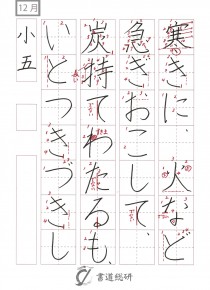 12月
寒きに、火など
急ぎおこして、
炭持てわたるも、
いとつきづきし
小五
書道総研